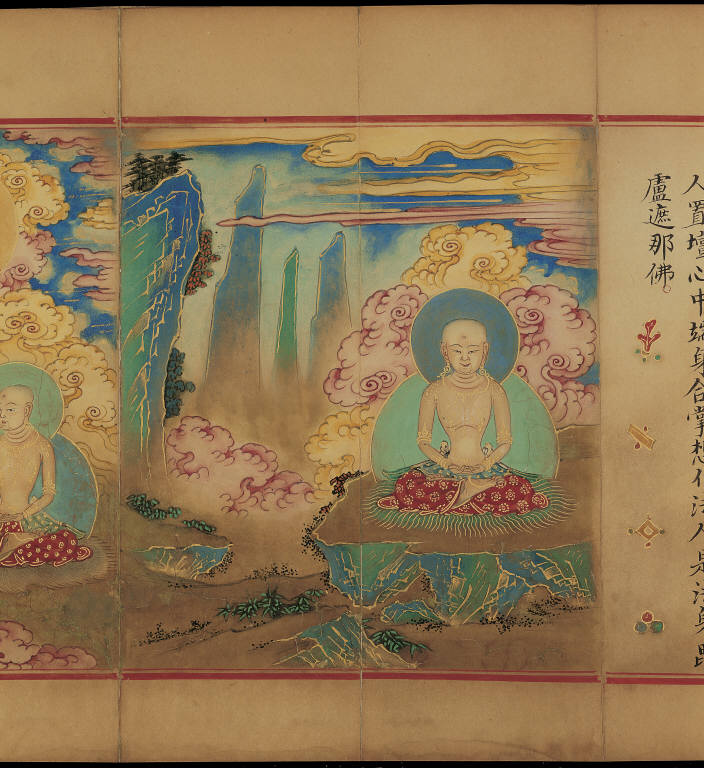 人置壇心中端身合掌想作法人是法身毘
盧遮那佛